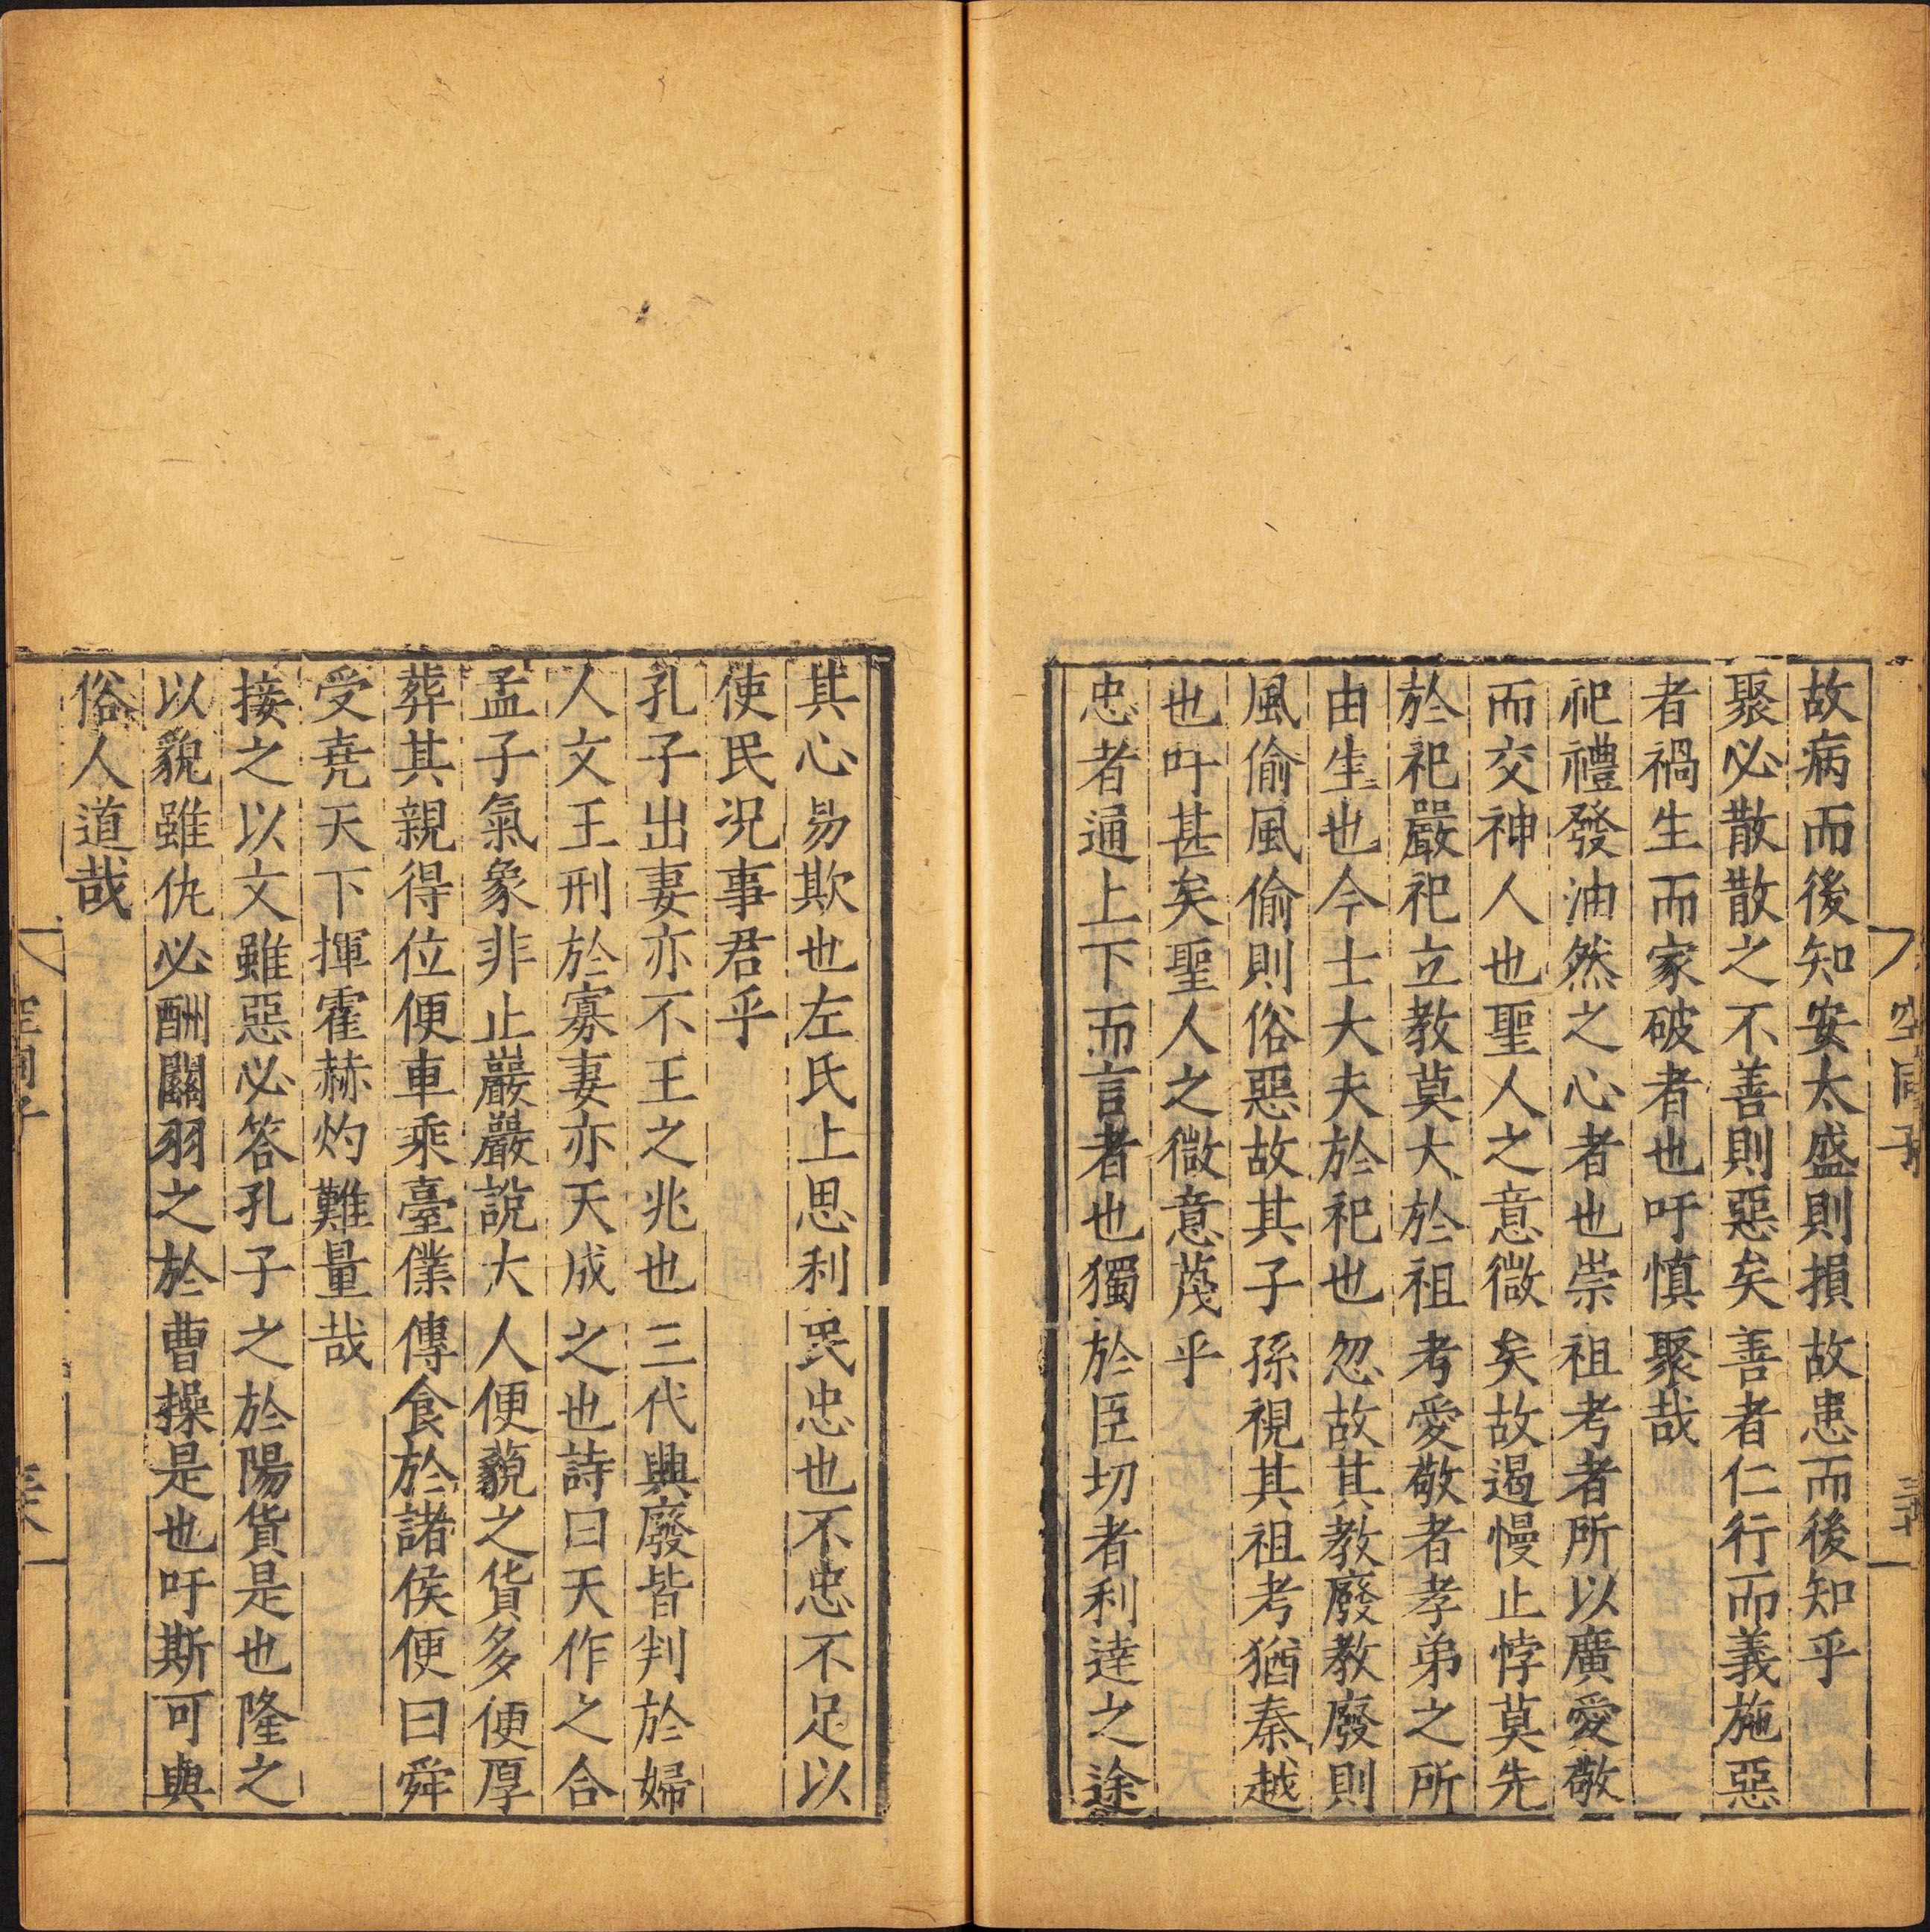 故病而後知安太盛則損故患而後知乎
聚必散散之不善則惡矣善者仁行而義施惡
者禍生而家破者也吁慎聚哉
祀禮發油然之心者也崇祖考者所以廣愛敬
而交神人也聖人之意微矣故遏慢止悖莫先
於祀嚴祀立教莫大於祖考愛敬者孝弟之所
由生也今士大夫於祀也忽故其教廢教廢則
風偷風偷則俗惡故其子孫視其祖考猶秦越
也吁甚矣聖人之微意蔑乎
忠者通上下而言者也獨於臣切者利達之途
其心易欺也左氏上思利民忠也不忠不足以
使民况事君乎
孔子出妻亦不王之兆也三代興廢皆判於婦
人文王刑於寡妻亦天成之也詩曰天作之合
孟子氣象非止嚴嚴說大人便藐之貨多便厚
葬其親得位便車乘臺僕傳食於諸侯便曰舜
受堯天下揮霍赫灼難量哉
接之以文雖惡必答孔子之於陽貨是也隆之
以貌雖仇必酬關羽之於曹操是也吁斯可與
俗人道哉
空同子